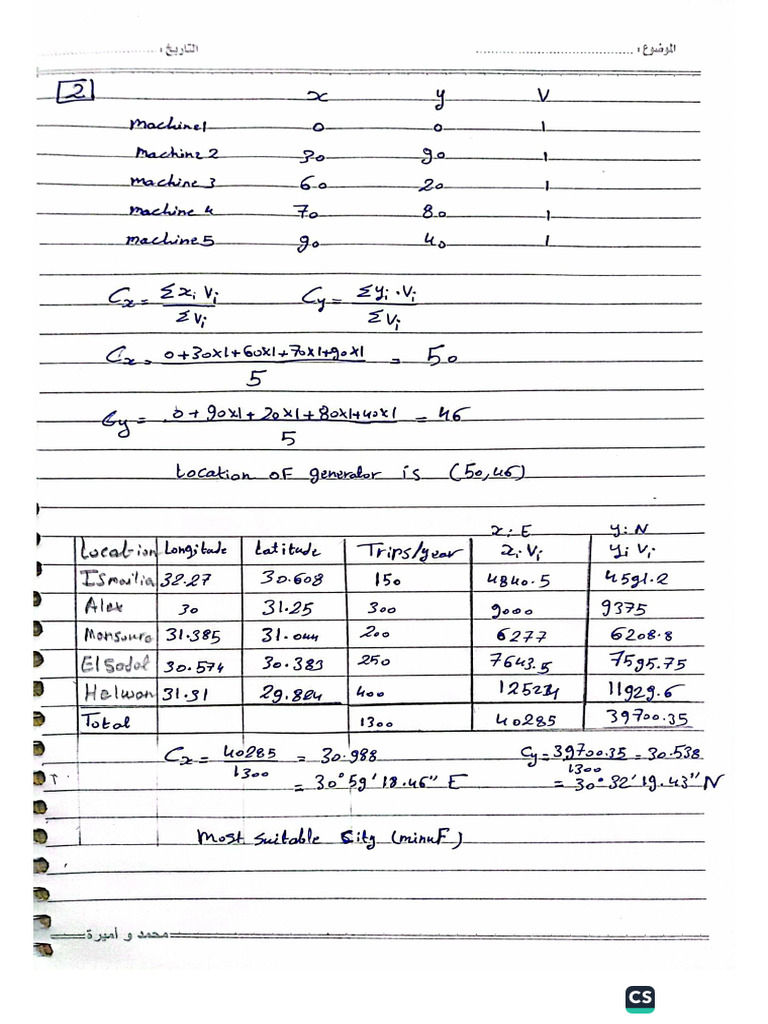 الموضوع : التاريخ :
2 x y V
Machine1 0 0 1
Machine 2 30 90 1
machine 3 60 20 1
machine 4 70 80 1
machine 5 90 40 1
Cx = Σxi Vi / ΣVi Cy = Σyi . Vi / ΣVi
Cx = 0+30x1+60x1+70x1+90x1 / 5 = 50
Cy = 0+90x1+20x1+80x1+40x1 / 5 = 46
Location of generator is (50,46)
x: E y: N
Location Longitude Latitude Trips/year xi Vi yi Vi
Ismailia 32.27 30.608 150 4840.5 4591.2
Alex 30 31.25 300 9000 9375
Mansoura 31.385 31.044 200 6277 6208.8
El Sadat 30.574 30.383 250 7643.5 7595.75
Helwan 31.31 29.824 400 12524 11929.6
Total 1300 40285 39700.35
Cx = 40285 / 1300 = 30.988 Cy = 39700.35 / 1300 = 30.538
= 30° 59' 18.46" E = 30° 32' 19.43" N
Most suitable City (minuf)
محمد و أميرة
CS